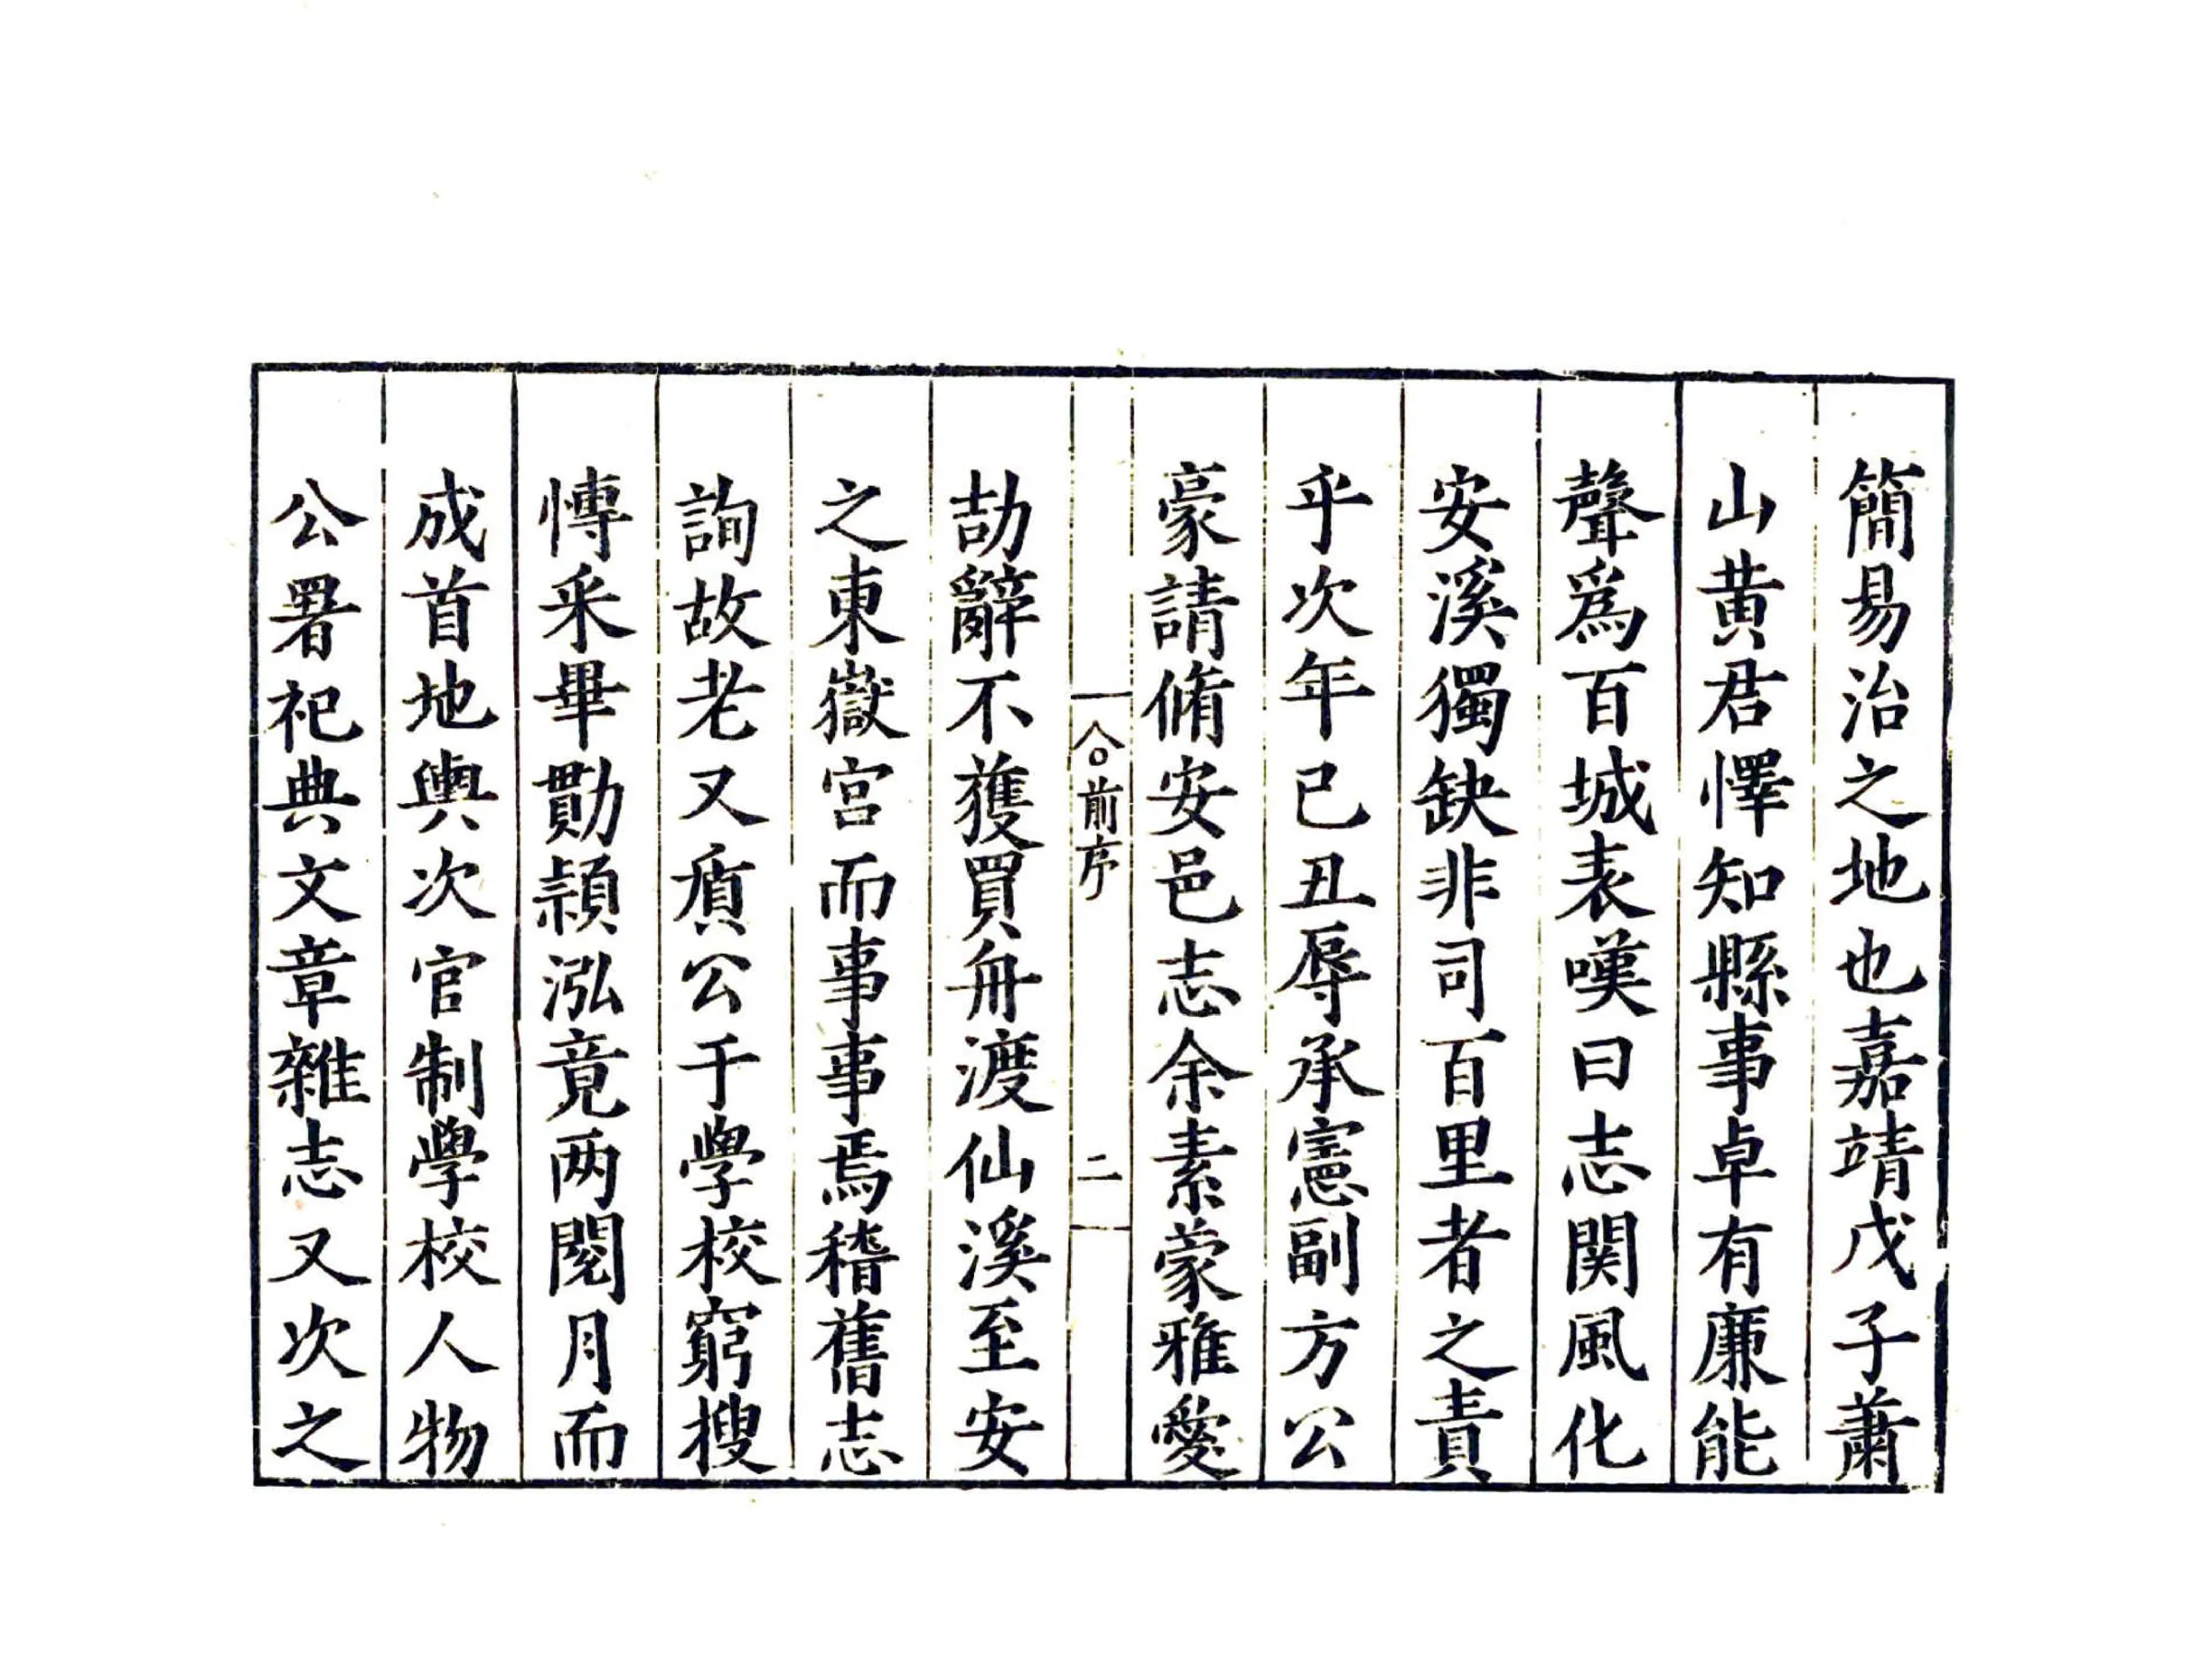 簡易治之地也嘉靖戊子蕭
山黄君懌知縣事卓有廉能
聲爲百城表嘆曰志関風化
安溪獨缺非司百里者之責
乎次年已丑辱承憲副方公
豪請脩安邑志余素蒙雅愛
前序
二
劼辭不獲買舟渡仙溪至安
之東嶽宫而事事焉稽舊志
詢故老又貭公于學校窮搜
愽采畢勩頴泓竟两閱月而
成首地輿次官制學校人物
公署祀典文章雜志又次之